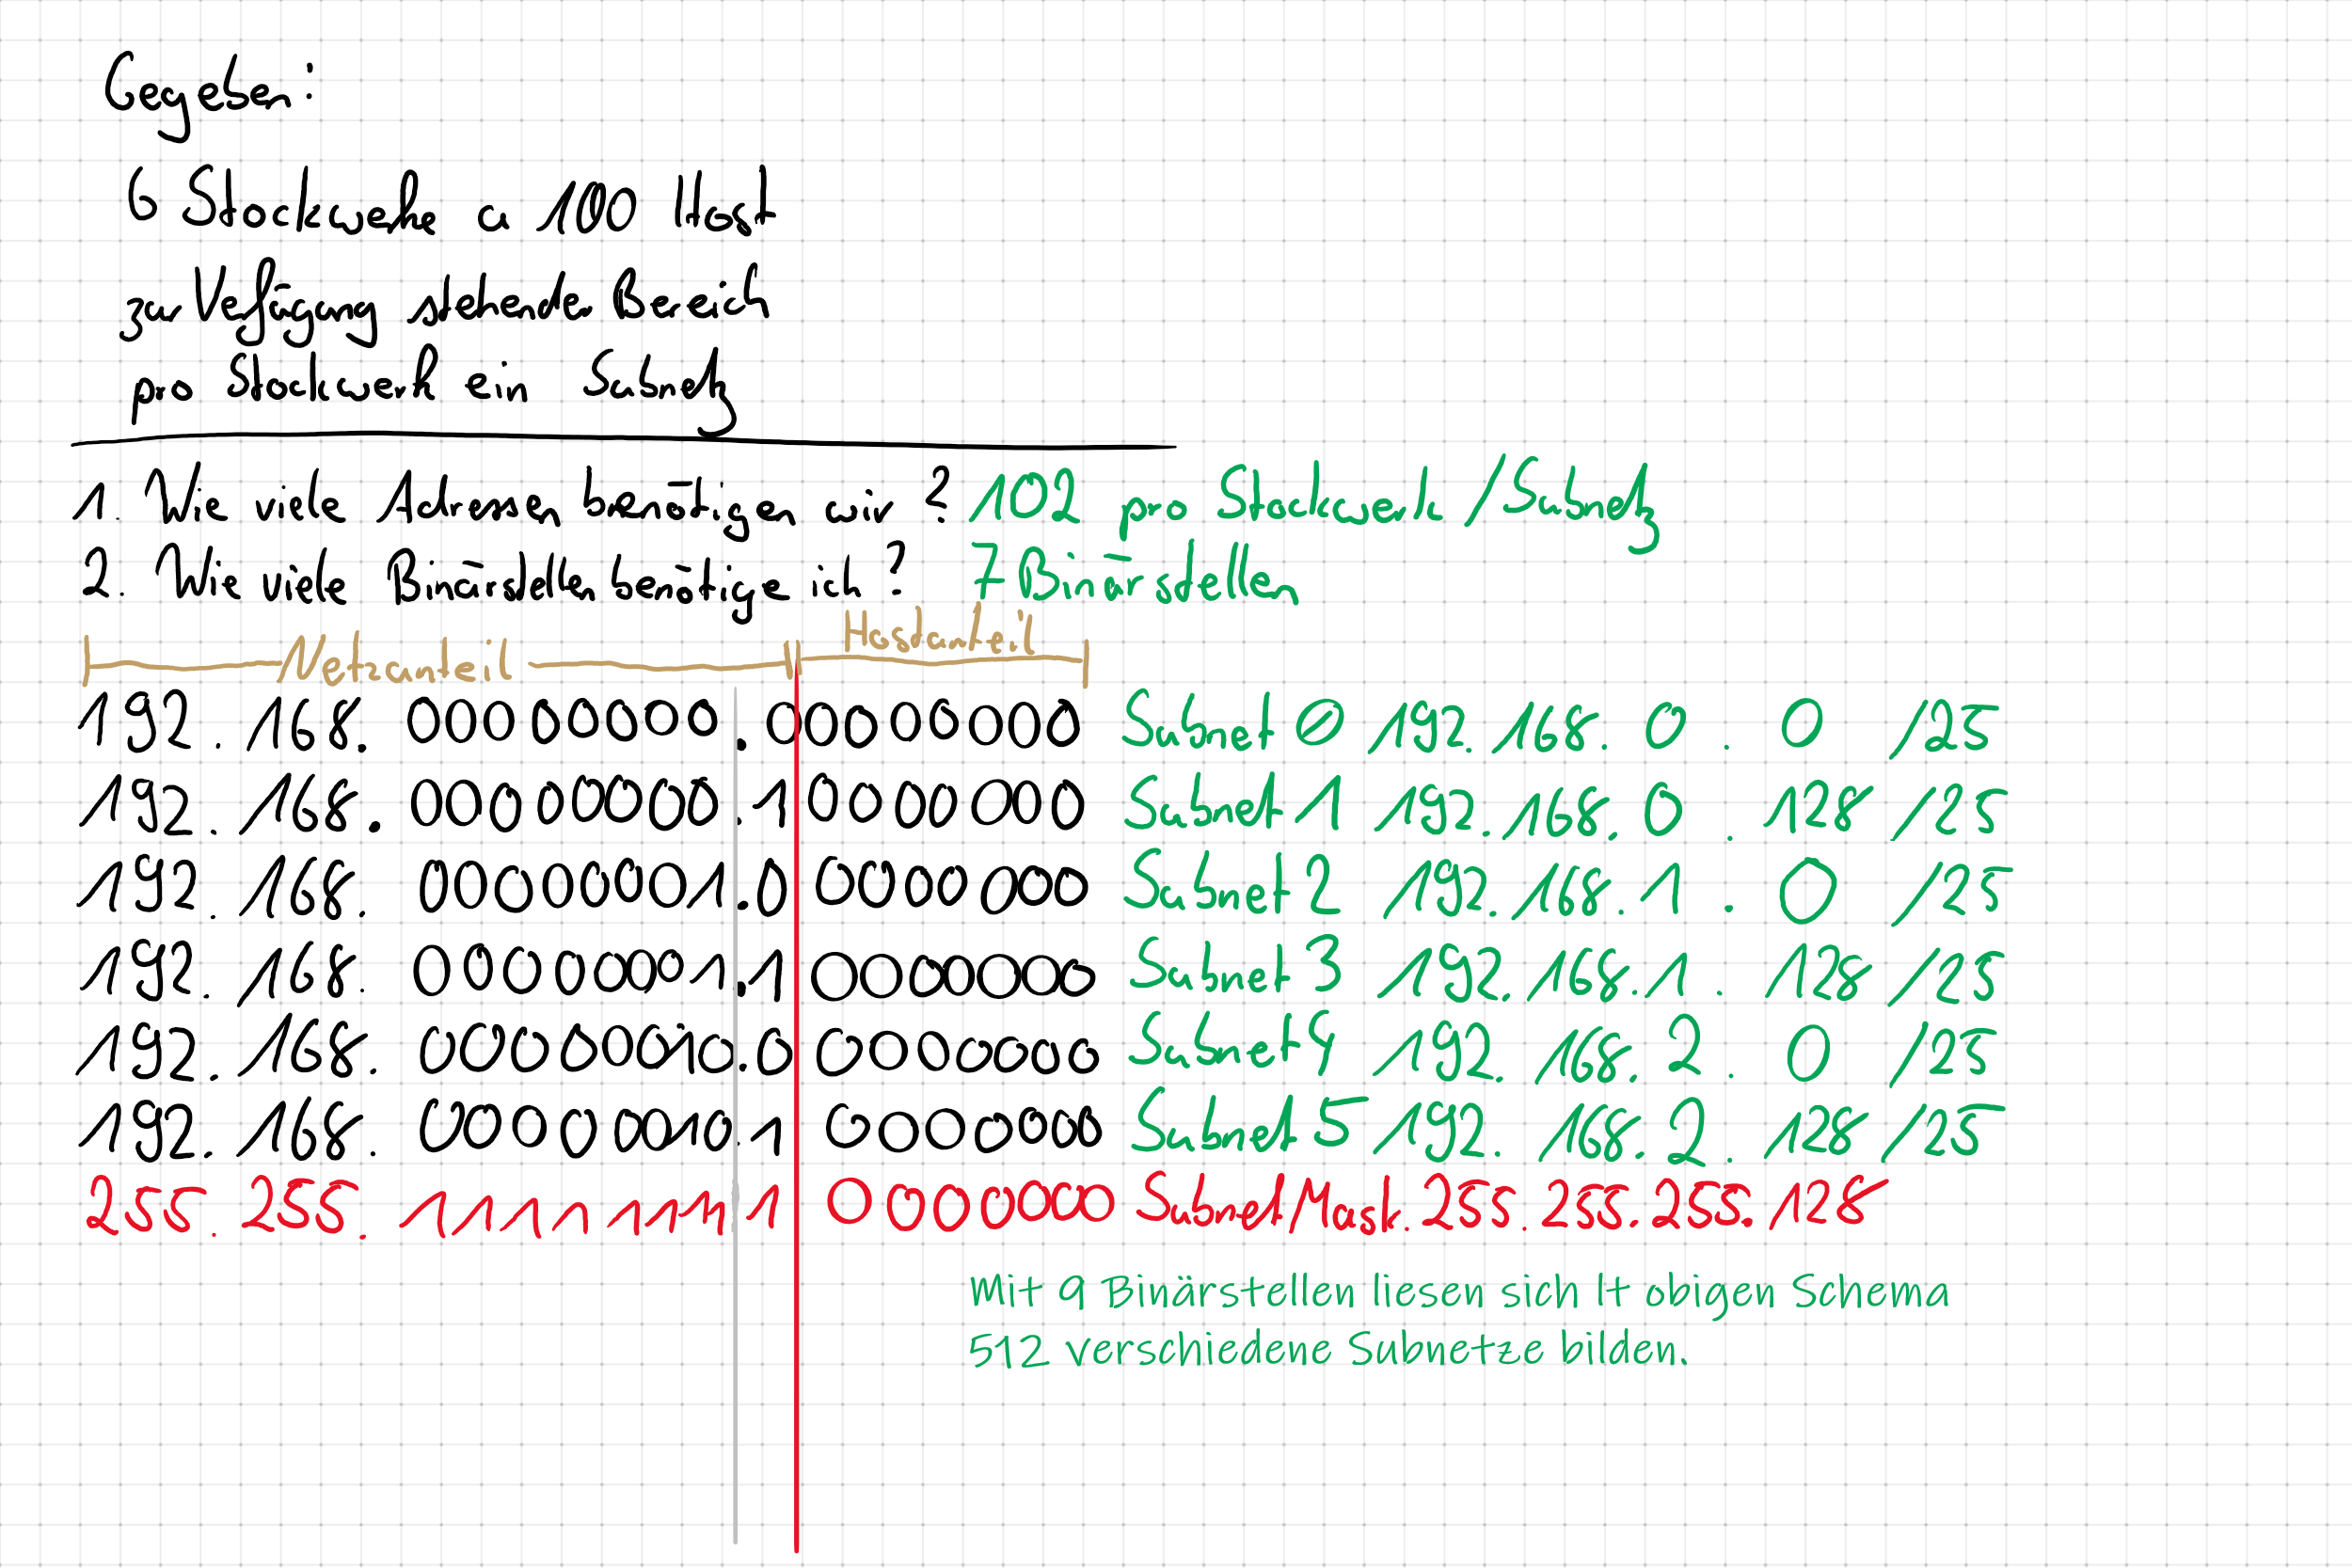 Gegeben:
6 Stockwerke a 100 Host
zur Verfügung stehender Bereich
pro Stockwerk ein Subnetz
1. Wie viele Adressen benötigen wir? 102 pro Stockwerk/Subnetz
2. Wie viele Binärstellen benötige ich? 7 Binärstellen
Netzanteil Hostanteil
192.168.00000000.00000000 Subnet 0 192.168.0.0 /25
192.168.00000000.10000000 Subnet 1 192.168.0.128 /25
192.168.00000001.00000000 Subnet 2 192.168.1.0 /25
192.168.00000001.10000000 Subnet 3 192.168.1.128 /25
192.168.00000010.00000000 Subnet 4 192.168.2.0 /25
192.168.00000010.10000000 Subnet 5 192.168.2.128 /25
255.255.11111111 1 0000000 Subnet Mask. 255.255.255.128
Mit 9 Binärstellen liesen sich lt obigen Schema
512 verschiedene Subnetze bilden.